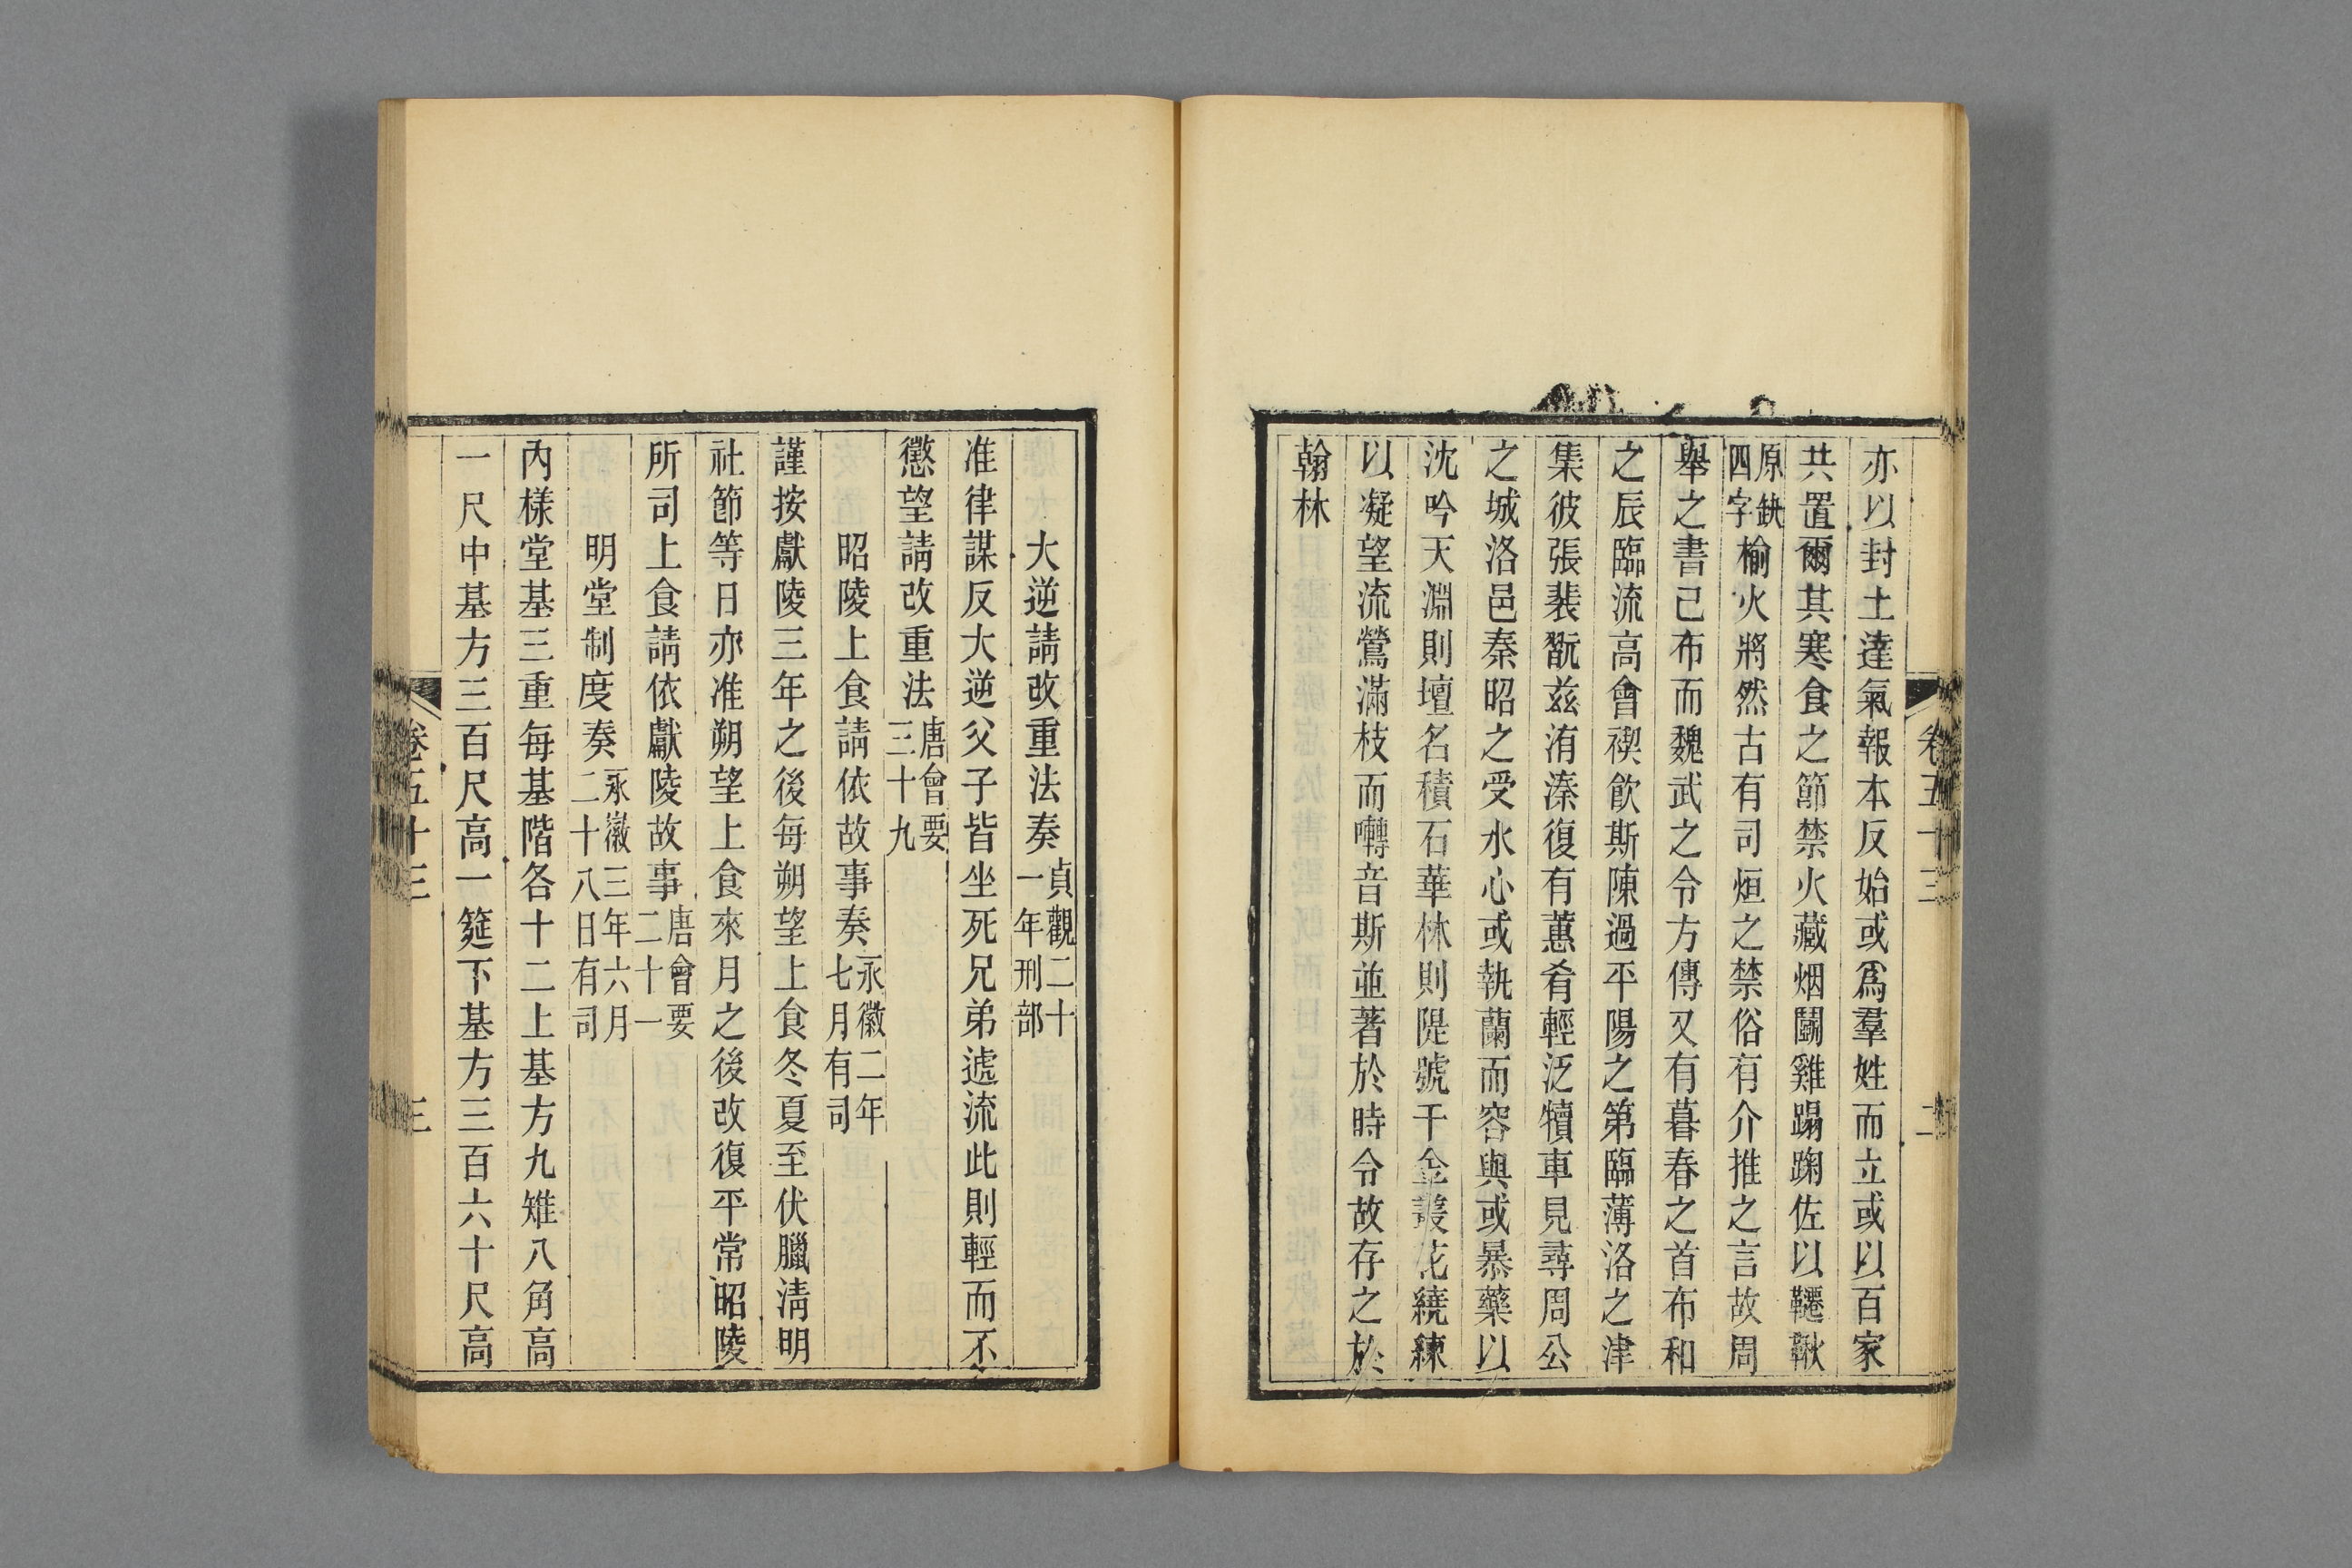 亦以封土達氣報本反始或爲羣姓而立或以百家
共置爾其寒食之節禁火藏烟鬭雞蹋踘佐以韆鞦
原缺四字榆火將然古有司烜之禁俗有介推之言故周
舉之書己布而魏武之令方傳又有暮春之首布和
之辰臨流高會禊飲斯陳過平陽之第臨薄洛之津
集彼張裴翫兹洧溱復有蕙肴輕泛犢車見尋周公
之城洛邑秦昭之受水心或執蘭而容與或暴藥以
沈吟天淵則壇名積石華林則隄號千金叢花繞練
以凝望流鶯滿枝而囀音斯並著於時令故存之於
翰林
卷五十三
二
大逆請改重法奏貞觀二十一年刑部
准律謀反大逆父子皆坐死兄弟遞流此則輕而不
懲望請改重法唐會要三十九
昭陵上食請依故事奏永徽二年七月有司
謹按獻陵三年之後每朔望上食冬夏至伏臘清明
社節等日亦准朔望上食來月之後改復平常昭陵
所司上食請依獻陵故事唐會要二十一
明堂制度奏永徽三年六月二十八日有司
內樣堂基三重每基階各十二上基方九雉八角高
一尺中基方三百尺高一筵下基方三百六十尺高
卷五十三
三